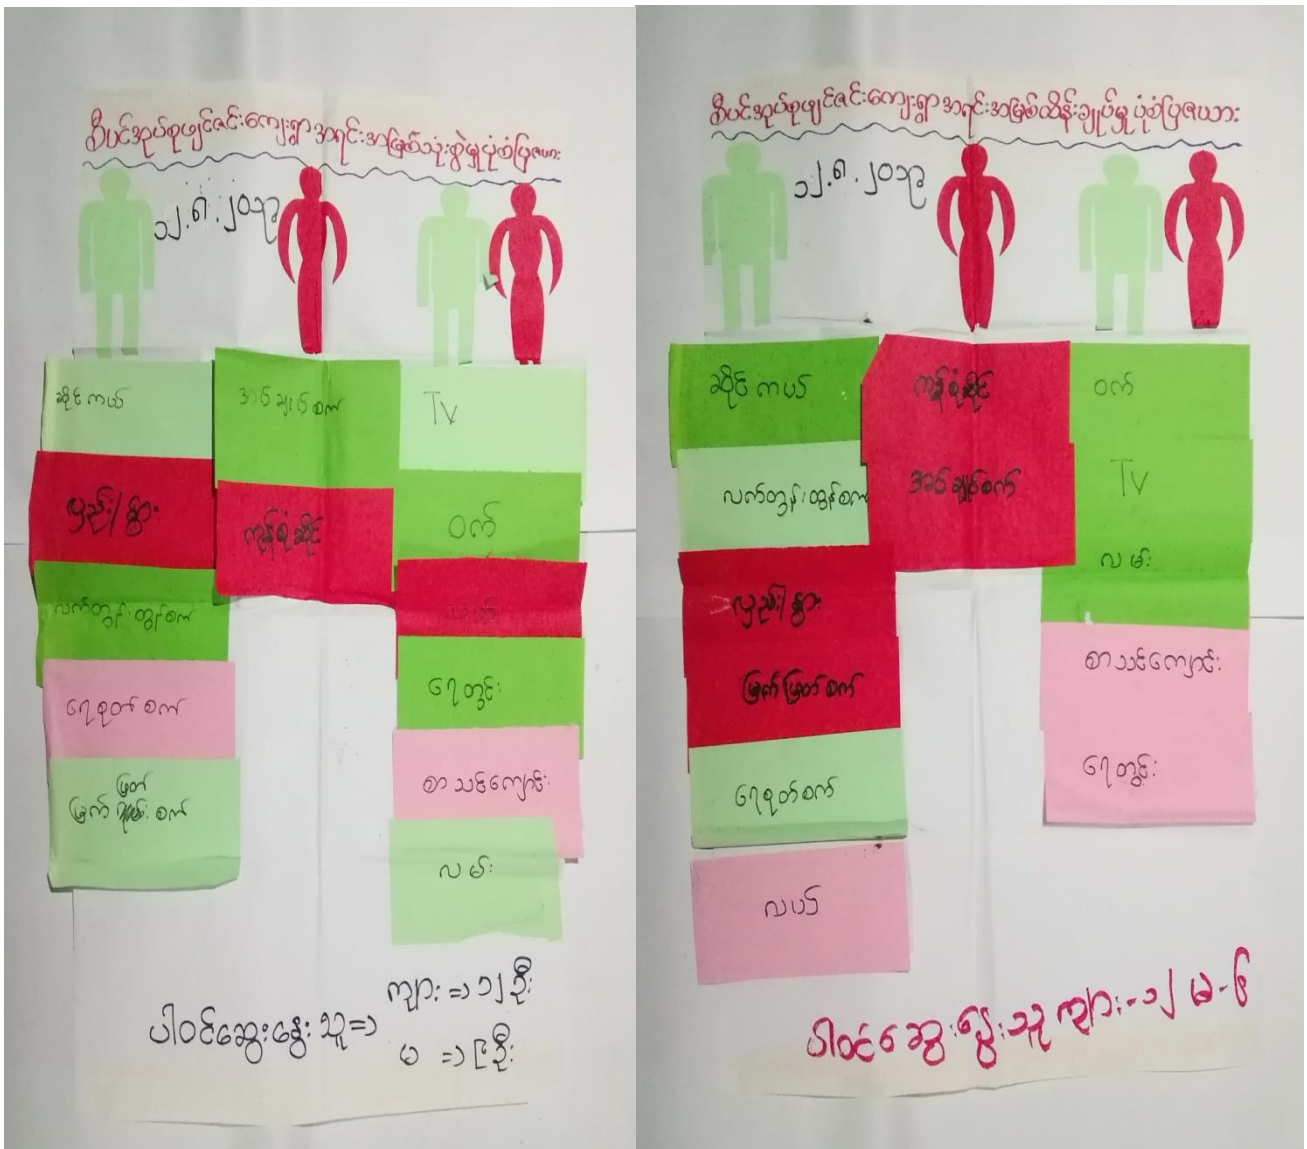 စီပင်အုပ်စုဖျင်ဇင်းကျေးရွာ အရင်းအမြစ်သုံးစွဲမှုပုံစံပြဇယား
၁၂.၈.၂၀၁၃
ဆိုင်ကယ်
လှည်း/နွား
လက်တွန်းထွန်စက်
ရေစုတ်စက်
မြတ်
မြက် စက်
အပ်ချုပ်စက်
ကုန်စုံဆိုင်
TV
ဝက်
လယ်
ရေတွင်း
စာသင်ကျောင်း
လမ်း
ပါဝင်ဆွေးနွေးသူ=>
ကျား => ၁၂ဦး
မ => ၉ဦး
စီပင်အုပ်စုဖျင်ဇင်းကျေးရွာ အရင်းအမြစ်ထိန်းချုပ်မှု ပုံစံပြဇယား
၁၂.၈.၂၀၁၃
ဆိုင်ကယ်
လက်တွန်းထွန်စက်
လှည်း/နွား
မြက်ဖြတ်စက်
ရေစုတ်စက်
လယ်
ကုန်စုံဆိုင်
အပ်ချုပ်စက်
ဝက်
TV
လမ်း
စာသင်ကျောင်း
ရေတွင်း
ပါဝင်ဆွေးနွေးသူ ကျား-၁၂ မ-၉